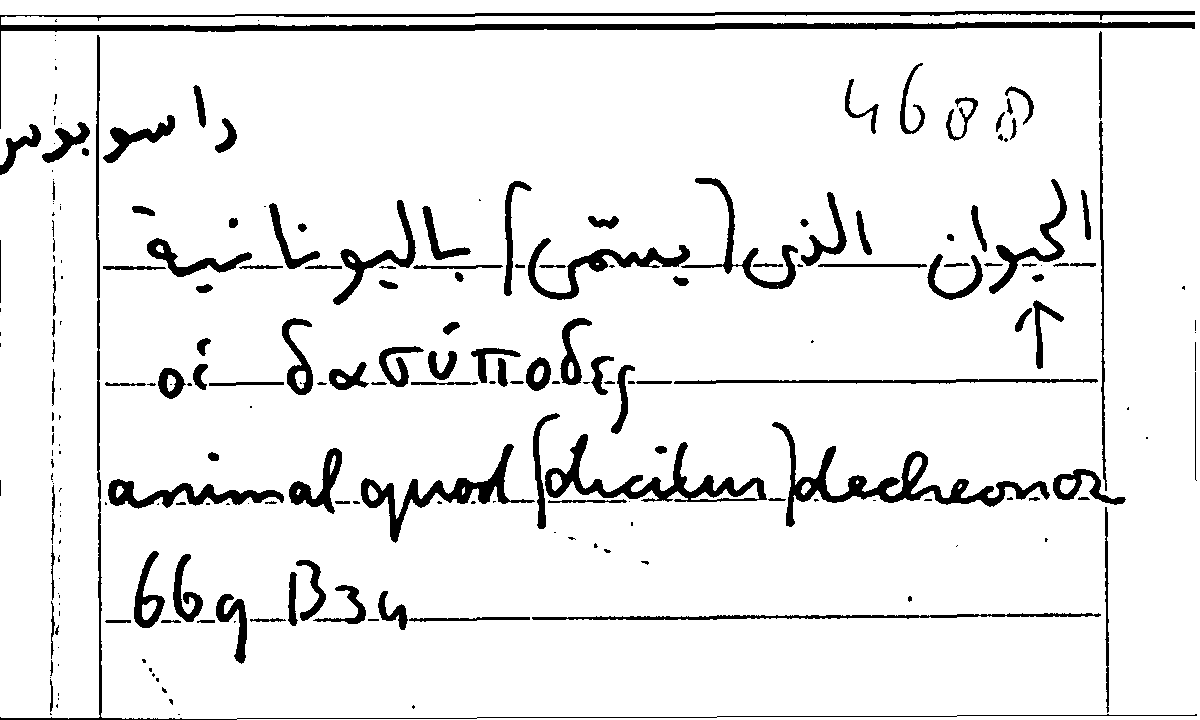 4688
داسوبودس
الحيوان الذى (يسمّى) باليونانية
οἱ δασύποδες
animal quod (dicitur) decheonoz
669 B34